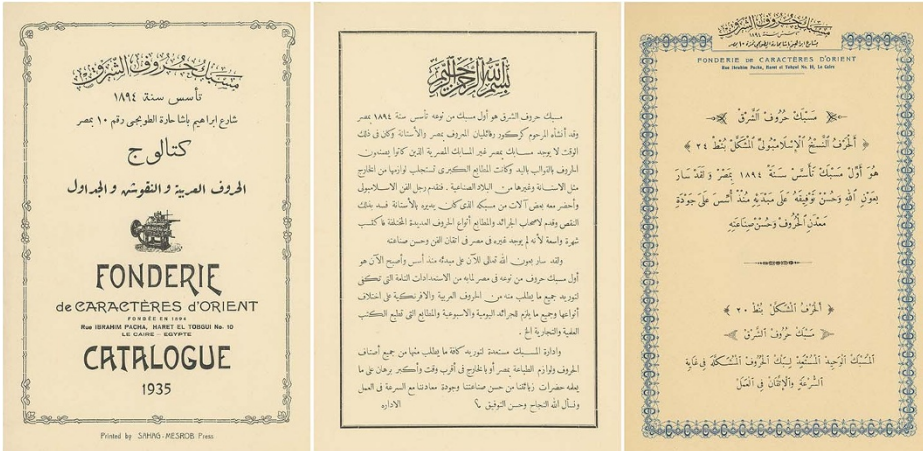 مسبك حروف الشرق
تأسس سنة ١٨٩٤
شارع ابراهيم باشا حارة الطوبجى رقم ١٠ بمصر
كتالوج
الحروف العربية والنقوش والجداول
FONDERIE
de CARACTÈRES d'ORIENT
FONDÉE EN 1894
Rue IBRAHIM PACHA, HARET EL TOBGUI No. 10
LE CAIRE - EGYPTE
CATALOGUE
1935
Printed by SAHAG-MESROB Press
بسم الله الرحمن الرحيم
مسبك حروف الشرق هو أول مسبك من نوعه تأسس سنة ١٨٩٤ بمصر
وقد أنشأه المرحوم كركور رفائليان المعروف بمصر والأستانة وكان فى ذلك
الوقت لا يوجد مسابك بمصر غير المسابك المصرية الذين كانوا يصنعون
الحروف بالقوالب باليد وكانت المطابع الكبرى تستجلب لوازمها من الخارج
مثل الاستانة وغيرها من البلاد الصناعية . فتقدم رجل الفن الاسلامبولى
وأحضر معه بعض آلات من مسبكه الذى كان يديره بالأستانة فسد بذلك
النقص وقدم لاصحاب الجرائد والمطابع أنواع الحروف العديدة المختلفة فاكتسب
شهرة واسعة لأنه لم يوجد غيره فى مصر فى اتقان الفن وحسن صناعته
ولقد سار بعون الله تعالى للآن على مبدئه منذ أسس وأصبح الآن هو
أول مسبك حروف من نوعه فى مصر لما به من الاستعدادات التامة التى تكفى
لتوريد جميع ما يطلب منه من الحروف العربية والافرنكية على اختلاف
أنواعها وجميع ما يلزم للجرائد اليومية والاسبوعية والمطابع التى تطبع الكتب
العلمية والتجارية الخ .
وادارة المسبك مستعدة لتوريد كافة ما يطلب منها من جميع أصناف
الحروف ولوازم الطباعة بمصر أو بالخارج فى أقرب وقت وأكبر برهان على ما
يعلمه حضرات زبائننا من حسن صناعتنا وجودة معادننا مع السرعة فى العمل
ونسأل الله النجاح وحسن التوفيق
الاداره
مسبك حروف الشرق
تأسس سنة ١٨٩٤
بشارع ابراهيم باشا بحارة الطوبجى نمرة ١٠ بمصر
FONDERIE DE CARACTÈRES D'ORIENT
Rue Ibrahim Pacha, Haret el Tobgui No. 10, Le Caire
مَسْبَكُ حُرُوفِ الشَّرْقِ
الْحَرْفُ النَّسْخُ الْإِسْلَامْبُولِىُّ الْمُشَكَّلُ بُنْطِ ٢٤
هُوَ أَوَّلُ مَسْبَكٍ تَأَسَّسَ سَنَةَ ١٨٩٤ بِمِصْرَ وَلَقَدْ سَارَ
بِعَوْنِ اللهِ وَحُسْنِ تَوْفِيقِهِ عَلَى مَبْدَئِهِ مُنْذُ أُسِّسَ عَلَى جَوْدَةِ
مَعْدَنِ الْحُرُوفِ وَحُسْنِ صِنَاعَتِهِ
الْحَرْفُ الْمُشَكَّلُ بُنْطِ ٢٠
مَسْبَكُ حُرُوفِ الشَّرْقِ
الْمَسْبَكُ الْوَحِيدُ الْمُسْتَعِدُّ لِسَبْكِ الْحُرُوفِ الْمُشَكَّلَةِ فِى غَايَةِ
السُّرْعَةِ وَالْإِتْقَانِ فِى الْعَمَلِ